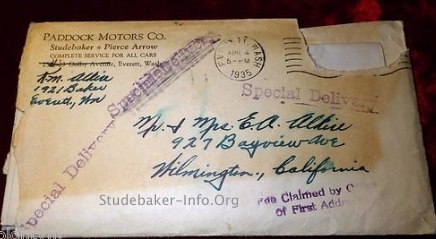 PADDOCK MOTORS CO.
Studebaker • Pierce Arrow
COMPLETE SERVICE FOR ALL CARS
Colby Avenue, Everett, Wash.
Wm. Alkie
1921 Baker
Everett, Wn
EVERETT WASH
APR 4
5-PM
1935
Special Delivery
Special Delivery
Special Delivery
Mr. & Mrs E.A. Alkie
927 Bayview Ave
Wilmington, California
Fee Claimed by Office
of First Addre
Studebaker-Info.Org